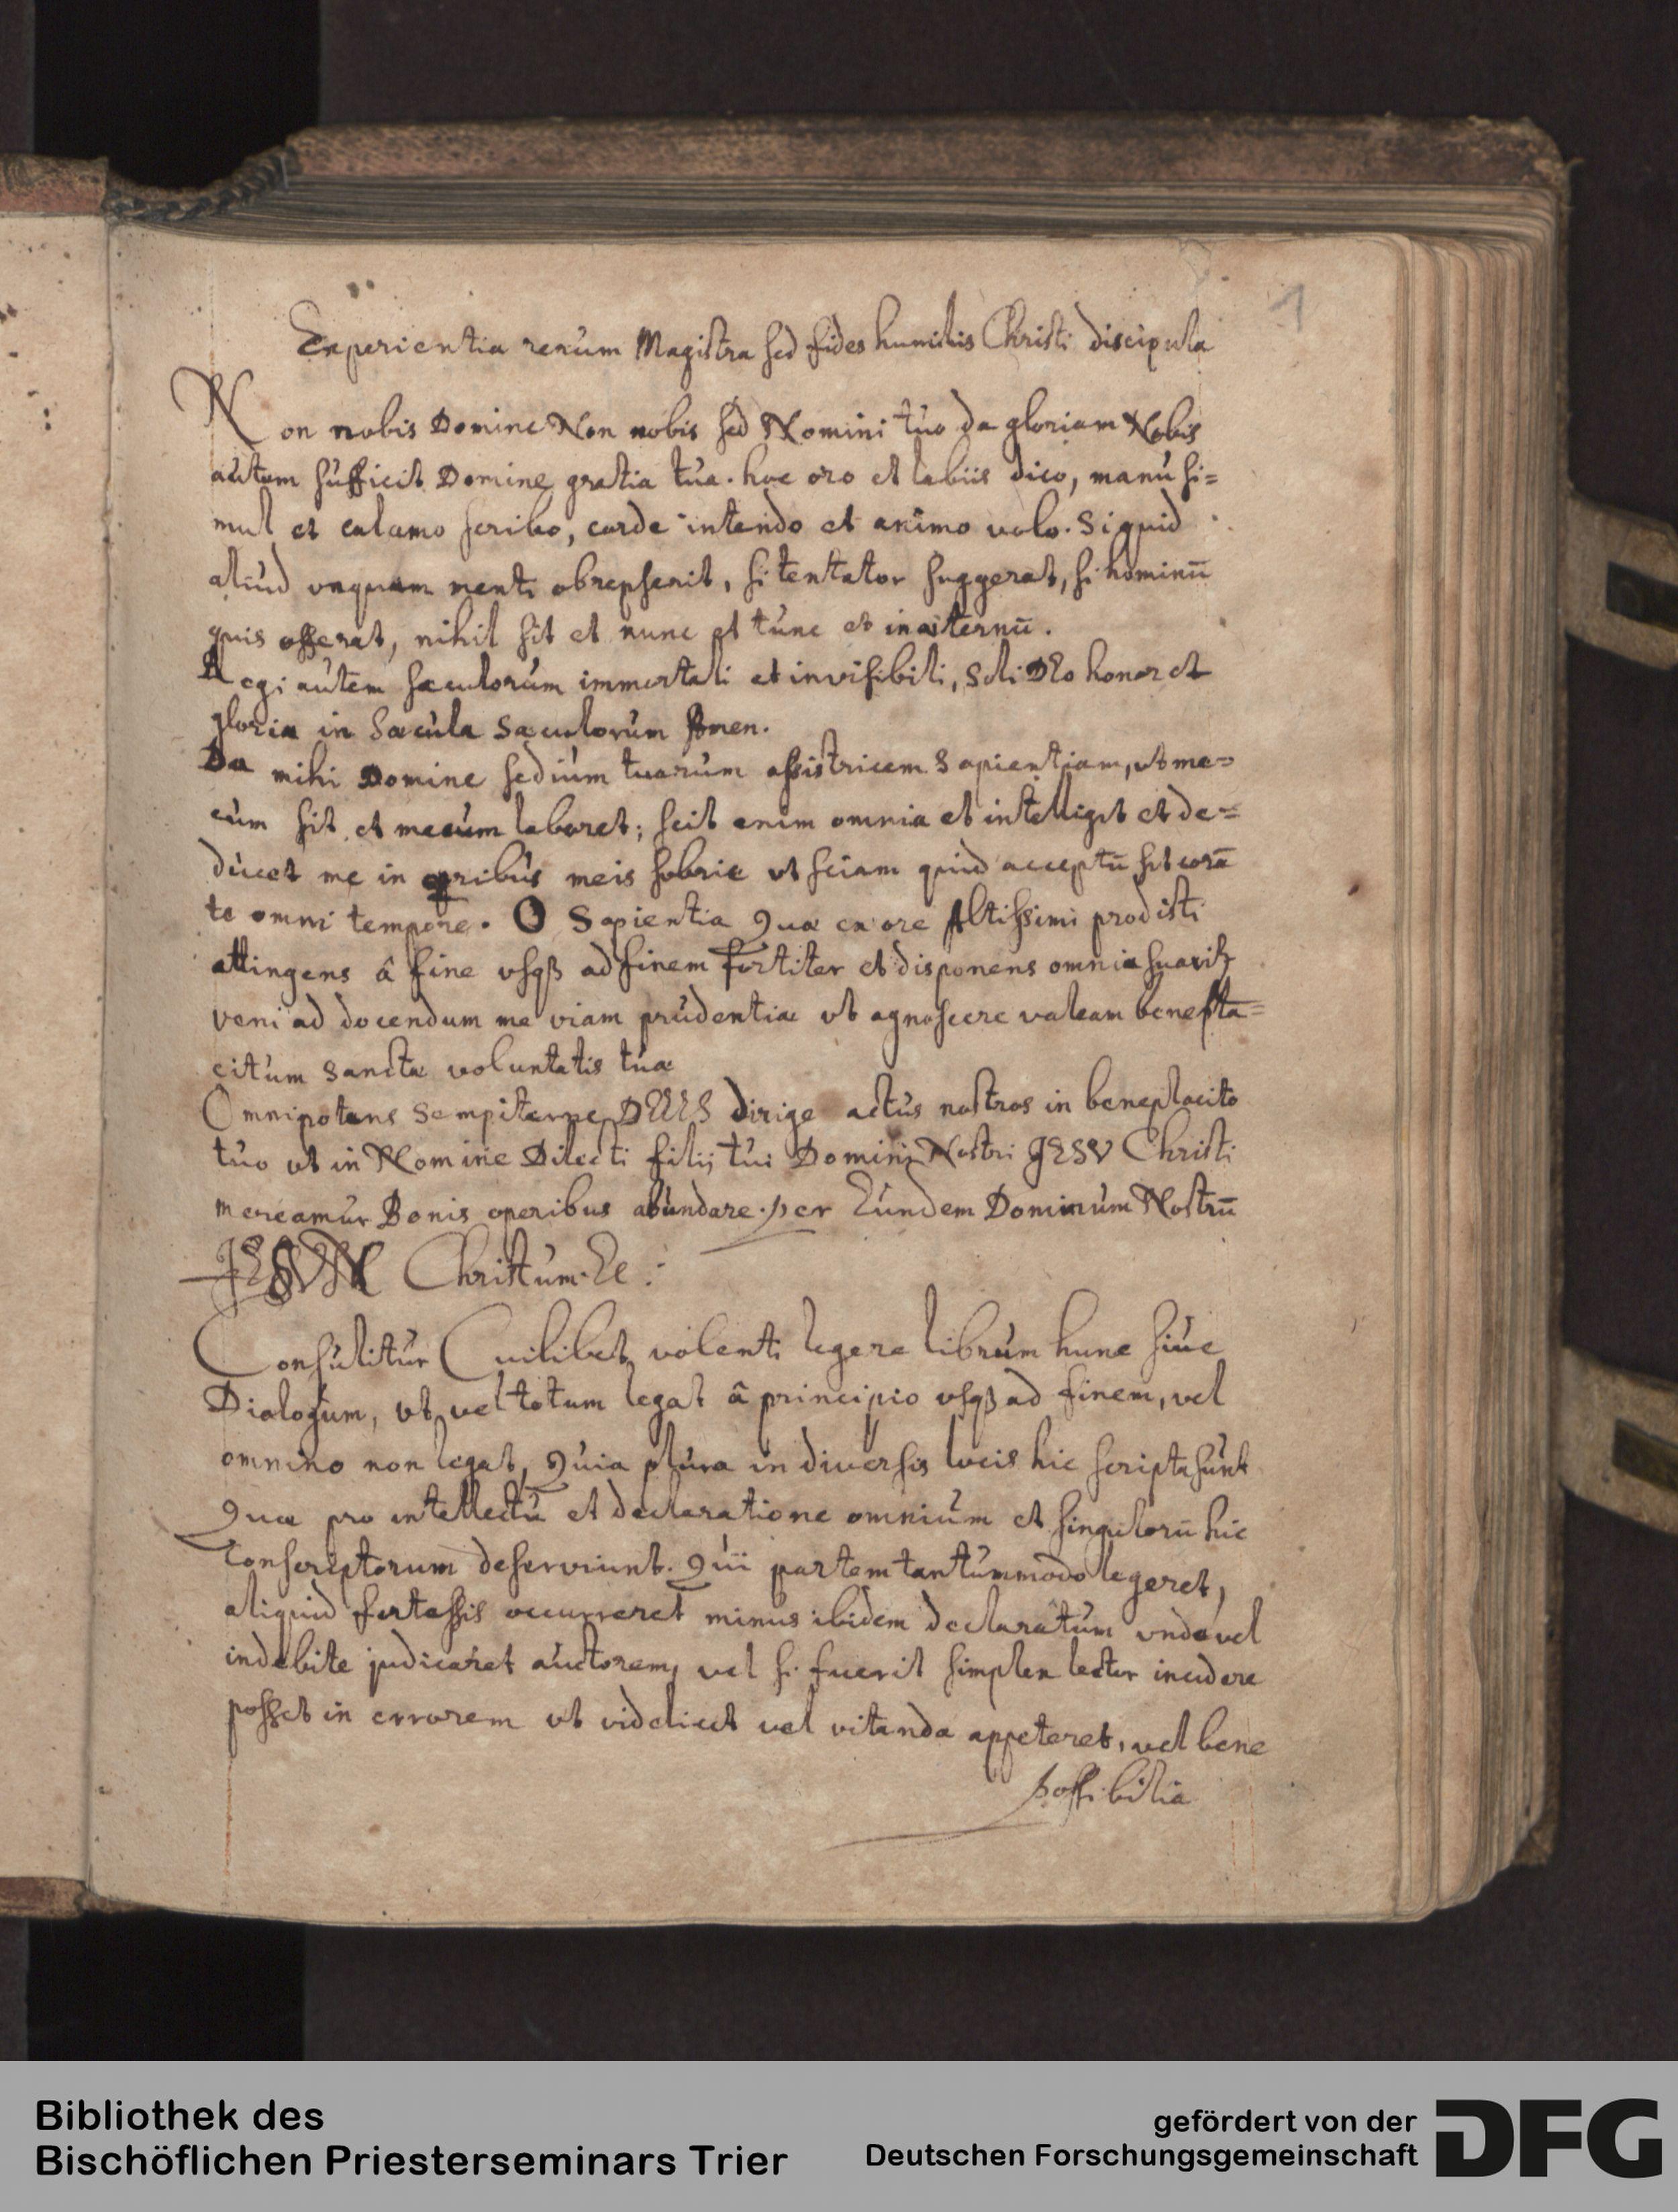 1
Experientia rerum Magistra sed fides humilis Christi discipula
Non nobis Domine Non nobis sed Nomini tuo da gloriam Nobis
autem sufficit Domine gratia tua. hoc oro et labiis dico, manu si=
mul et calamo scribo, corde intendo et animo volo. Si quid
aliud vnquam menti obrepserit, si tentator suggerat, si hominū
quis offerat, nihil sit et nunc et tunc et in aeternū.
Regi autem sæculorum immortali et invisibili, Soli Deo honor et
gloria in Sæcula Sæculorum Amen.
Da mihi Domine sedium tuarum assistricem Sapientiam, vt me=
cum sit et mecum laboret; scit enim omnia et intelligit et de=
ducet me in operibus meis sobrie vt sciam quid acceptū sit corā
te omni tempore. O Sapientia Quæ ex ore Altissimi prodisti
attingens â fine vsqꝫ ad finem fortiter et disponens omnia suavitꝫ
veni ad docendum me viam prudentiæ vt agnoscere valeam benepla=
citum Sanctæ voluntatis tuæ
Omnipotens Sempiterne DEUS dirige actus nostros in beneplacito
tuo vt in Nomine Dilecti filij tui Domini Nostri JESV Christi
mereamur Bonis operibus abundare. per Eundem Dominum Nostrū
JESVM Christum. Ec:
Consulitur Cuilibet volenti legere librum hunc siue
Dialogum, vt vel totum legat â principio vsqꝫ ad finem, vel
omnino non legat, Quia plura in diuersis locis hic scripta sunt
Quæ pro intellectu et declaratione omnium et singulorū hic
Conscriptorum deserviunt. Qui partem tantummodo legeret,
aliquid fortassis occurreret minus ibidem declaratum vnde vel
indebite judicaret auctorem, vel si fuerit simplex lector incidere
posset in errorem vt videlicet vel vitanda appeteret, vel bene
possibilia
Bibliothek des
Bischöflichen Priesterseminars Trier
gefördert von der
Deutschen Forschungsgemeinschaft
DFG